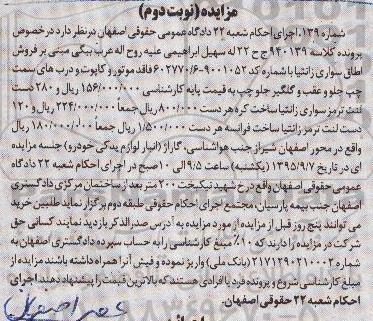 مزایده (نوبت دوم)
شماره ۱۳۹، اجرای احکام شعبه ۲۲ دادگاه عمومی حقوقی اصفهان در نظر دارد در خصوص
پرونده کلاسه ۹۴۰۱۳۹ ج ح ۲۲ له سهیل ابراهیمی علیه روح اله عرب بیگی مبنی بر فروش
اطاق سواری زانتیا با شماره کد ۹۰۰۱۰۵۲-۶۰۲۷۷۰۶ فاقد موتور و کاپوت و درب های سمت
چپ جلو و عقب و گلگیر جلو چپ به قیمت پایه کارشناسی ۱۵۶/۰۰۰/۰۰۰ ریال و ۲۸۰ دست
لنت ترمز سواری زانتیا ساخت کره هر دست ۸۰۰/۰۰۰ ریال جمعاً ۲۲۴/۰۰۰/۰۰۰ ریال و ۱۲۰
دست لنت ترمز زانتیا ساخت فرانسه هر دست ۱/۵۰۰/۰۰۰ ریال جمعاً ۱۸۰/۰۰۰/۰۰۰ ریال
واقع در محور اصفهان شیراز جنب هواشناسی، گاراژ (انبار لوازم یدکی خودرو) جلسه مزایده
ای در تاریخ ۱۳۹۵/۹/۷ (یکشنبه) ساعت ۹/۵ الی ۱۰ صبح در اجرای احکام شعبه ۲۲ دادگاه
عمومی حقوقی اصفهان واقع در خ شهید نیکبخت ۲۰۰ متر بعد از ساختمان مرکزی دادگستری
اصفهان جنب بیمه پارسیان، مجتمع اجرای احکام حقوقی طبقه دوم برگزار نماید طالبین خرید
می توانند پنج روز قبل از مزایده از مورد مزایده به آدرس صدرالذکر بازدید نمایند کسانی حق
شرکت در مزایده را دارند که ۱۰٪ مبلغ کارشناسی را به حساب سپرده دادگستری اصفهان به
شماره ۲۱۷۱۲۹۰۲۱۰۰۰۲ (بانک ملی) واریز نموده و فیش آنرا همراه داشته باشند مزایده از
مبلغ کارشناسی شروع و برنده فرد یا افرادی هستند که بالاترین قیمت را پیشنهاد دهند. اجرای
احکام شعبه ۲۲ حقوقی اصفهان.